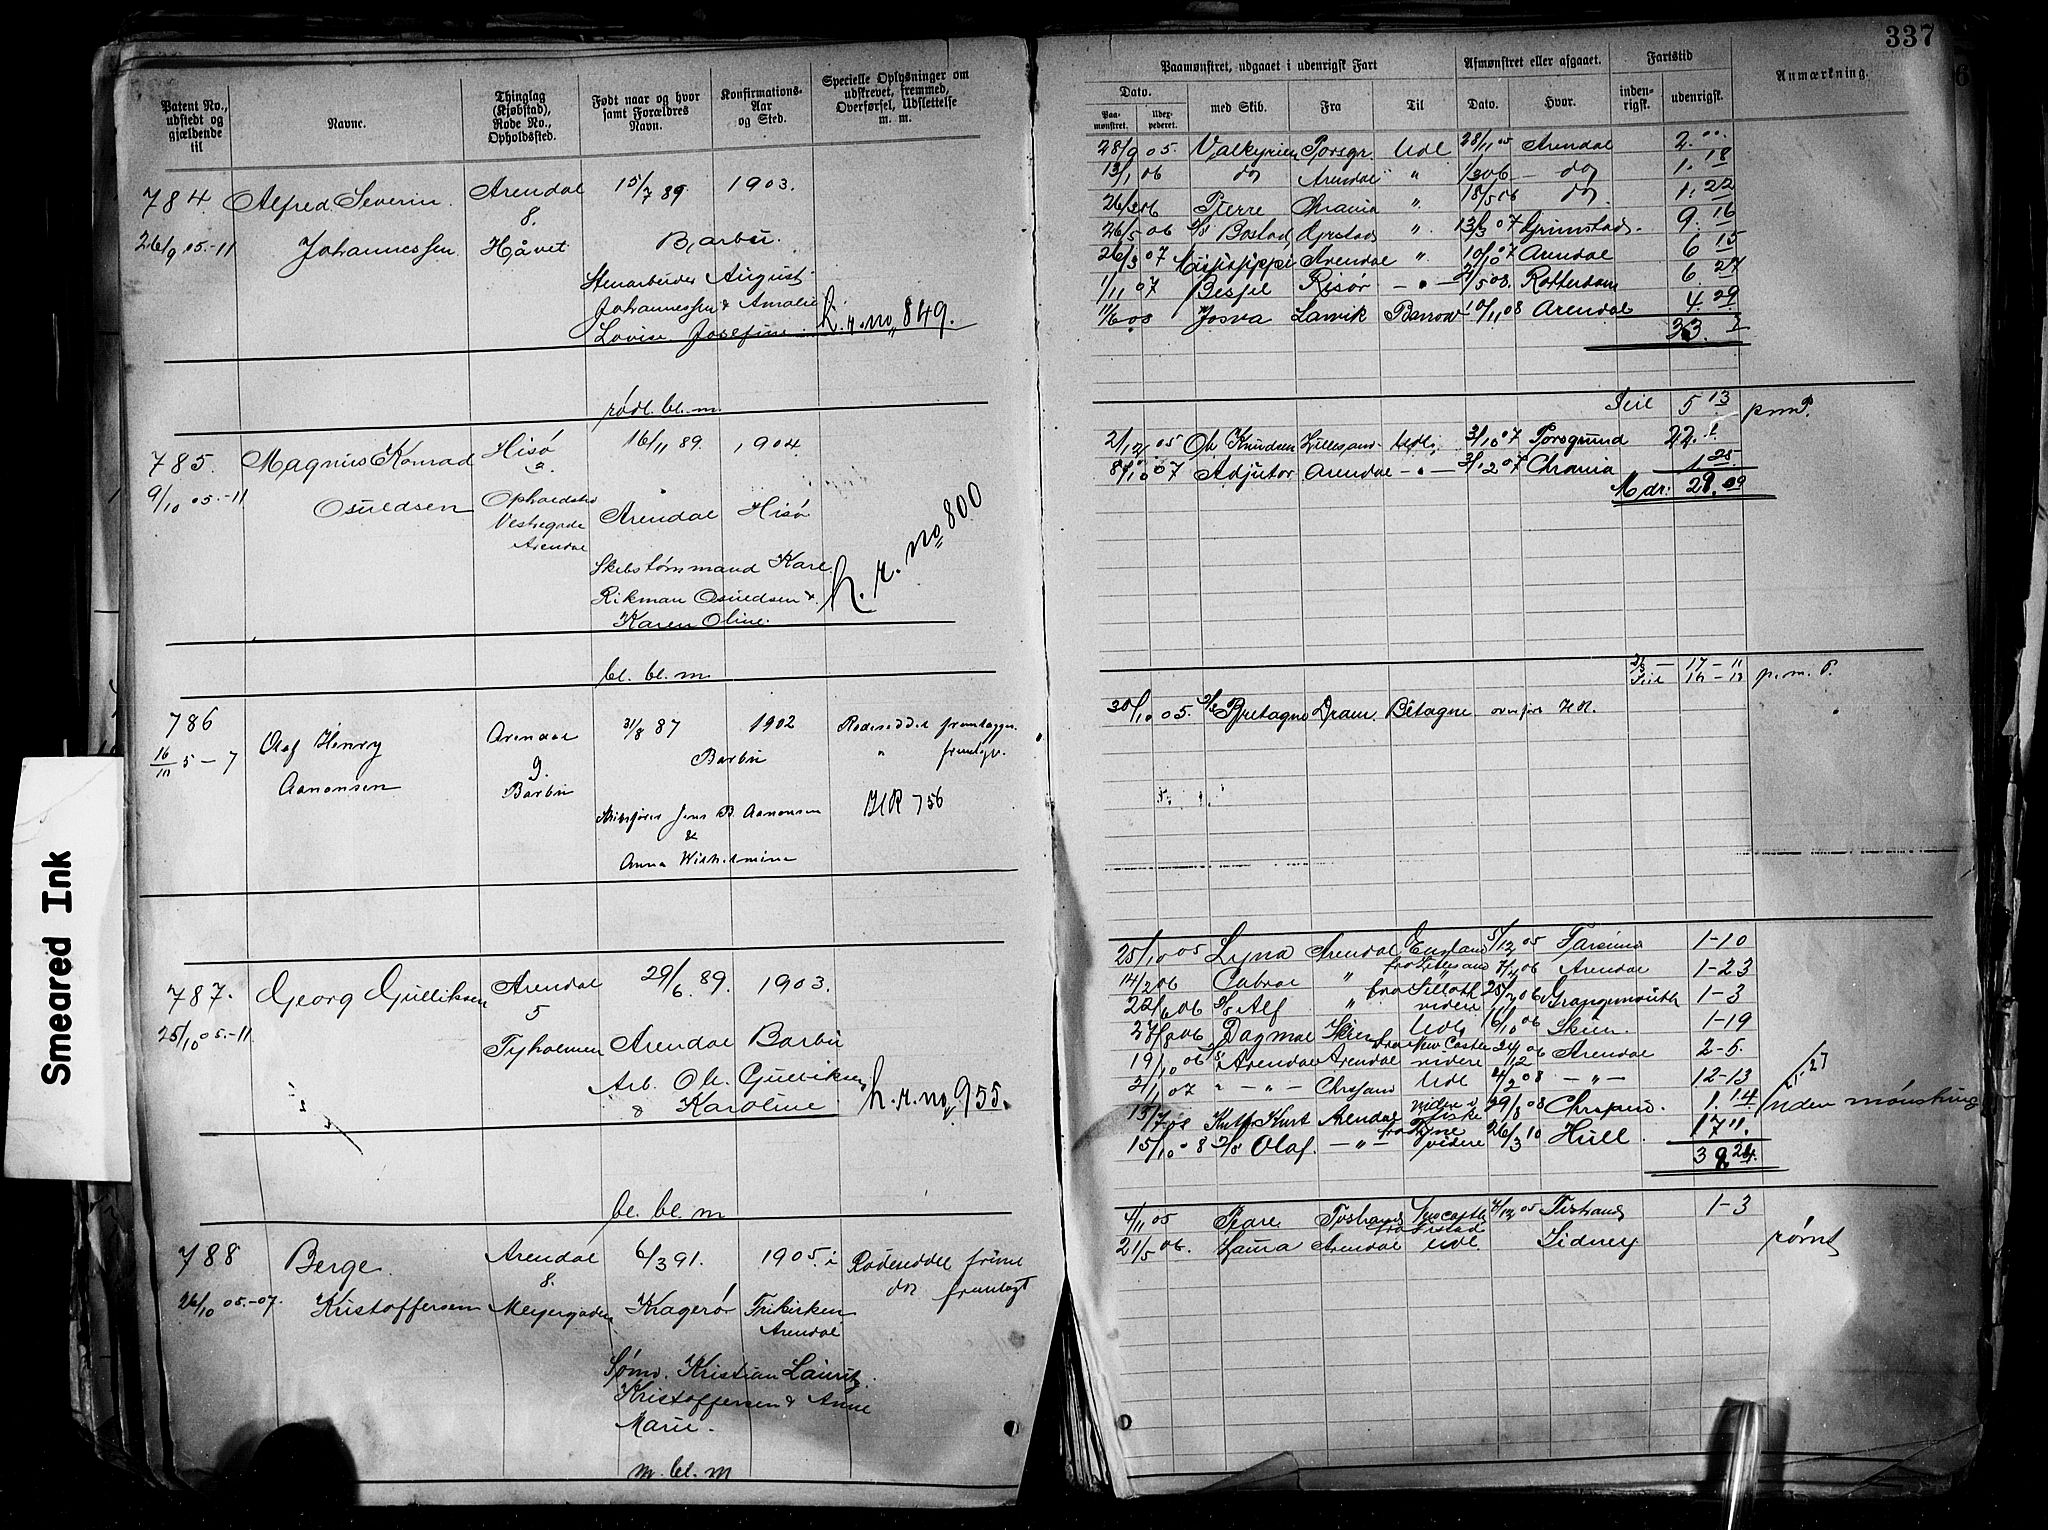 337
Patent No., udstedt og gjældende til
Navne.
Thinglag (Kjøbstad), Rode No., Opholdssted.
Født naar og hvor samt Forældres Navn.
Konfirmations- Aar og Sted.
Specielle Oplysninger om udskrevet, fremmed, Overførsel, Udslettelse m. m.
Paamønstret, udgaaet i udenrigsk Fart
Afmønstret eller afgaaet.
Fartstid
Anmærkning.
Dato.
Paa- mønstret.
Udex- pederet.
med Skib.
Fra
Til
Dato.
Hvor.
inden- rigsk.
udenrigsk.
784. Alfred Severin Arendal 15/7 89. 1903.
8.
26/9 05.-11 Johannessen Håvet Barbu.
Stenarbeider August
Johannessen & Amalie
Lovise Josefine. h.r.no 849.
28/9 05. Valkyrien Porsgr. Udl 28/11 05 Arendal 2.00
13/1 06 do Arendal " 1/3 06 - do 1.18
26/3 06 Pierre Chrania " 18/5 06 do 1.22
26/5 06 s/s Bostad " 13/3 07 Grimstad. 9.16
26/3 07 Missisippi Arendal " 10/10 07 Arendal 6 15
1/11 07 Risør - " - Rotterdam 6.27
11/6 08 Josva Larvik Barrow 10/11 08 Arendal 4.29
33.
rødl. bl. m.
785. Magnus Konrad Hisø 16/11 89. 1904.
2.
9/10 05.-11 Osuldsen Opholdsted
Vestregade
Arendal
Arendal Hisø
Skibstømmand Karl
Rikman Osuldsen &
Karen Oline.
h.r. no 800
Seil 5 13 pr m P.
2/12 05 Ole Knudsen Lillesand Udl. 3/10 07 Porsgrund 22.1.
8/10 07 Adjutor Arendal - " - Chrania 1.25
Mdr: 29.09
bl. bl. m.
786 Olaf Henry Arendal 31/8 87 1902 Rodeseddel fremlægges.
16/10 5 - 7 Aanonsen 9. Barbu " fremlagt.
Barbu
Skibsfører Jens B. Aanonsen
&
Anna Wilhelmine
HR 756
17 - 11
Seil p. m. P.
30/10 05. s/s Bretagne Dram. Bretagne overført HR.
787. Georg Gulliksen Arendal 29/6 89. 1903.
5
25/10 05.-11 Tyholmen Arendal Barbu
Arb. Ole Gulliksen
& Karoline h.r.no 955.
25/10 05 Lyna Arendal England 5/12 05 Farsund 1-10
14/2 06 Cabral " fra Lillesand 7/4 06 Arendal 1-23
22/6 06 s/s Alf " fra Silloth videre 25/7 06 Grangemouth 1-3
27/8 06 Dagmar Skien Udl 16/10 06 Skien. 1-19
19/10 06 s/s Arendal Arendal fra New Castle videre 24/12 06 Arendal 2-5.
2/1 07 " - " - Chrsand Udl 4/2 08 - " - 12-13
15/7 08 Kutt. Kurt Arendal videre f. fiske 29/8 08 Chrsand. 1.14 uden mønstring
15/10 08 s/s Olaf. - " - fra Tyne videre 26/3 10 Hull. 17 11.
39 24.
bl. bl. m
788 Berge Arendal 6/3 91. 1905. i Rodeseddel
8. do fremlagt
26/10 05.-07. Kristoffersen Meyergaden Kragerø Frikirken
Arendal
Sømd. Kristian Lauritz
Kristoffersen & Anne
Marie.
4/11 05 Peare Tvestrand Newcastle 7/12 05 Tvestrand 1-3
21/5 06. Laura Arendal Udl Sidney rømt
m. bl. m
Smeared Ink